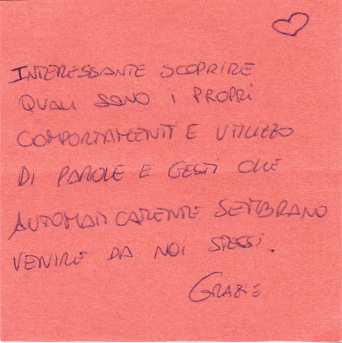 INTERESSANTE SCOPRIRE
QUALI SONO I PROPRI
COMPORTAMENTI E UTILIZZO
DI PAROLE E GESTI CHE
AUTOMATICAMENTE SEMBRANO
VENIRE DA NOI STESSI.
GRAZIE